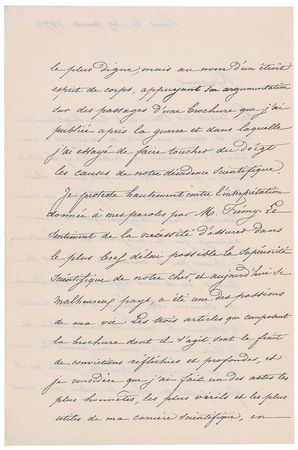 le plus digne, mais au nom d'un étroit
esprit de corps, appuyant son argumentation
sur des passages d'une brochure que j'ai
publiée après la guerre et dans laquelle
j'ai essayé de faire toucher du doigt
les causes de notre décadence scientifique
Je proteste hautement contre l'interprétation
donnée à mes paroles par M. Fremy. Le
sentiment de la nécessité d'assurer dans
le plus bref délai possible la supériorité
scientifique de notre cher, et aujourd'hui si
malheureux pays, a été une des passions
de ma vie. Les trois articles qui composent
la brochure dont il s'agit sont le fruit
de convictions réfléchies et profondes, et
je considère que j'ai fait un des actes les
plus honnêtes, les plus virils et les plus
utiles de ma carrière scientifique, en